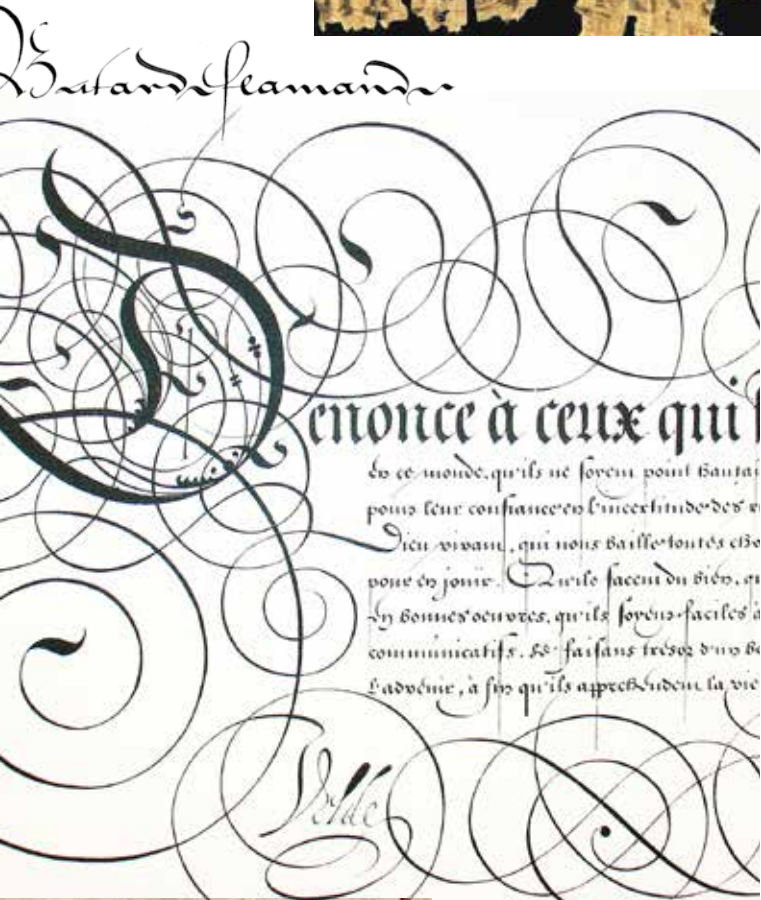 Batarde flamande
Denonce à ceux qui s
en ce monde, qu'ils ne soyent point hautai
poins leur confiance en l'incertitude des ri
Dieu vivant, qui nous baille toutes cho
pour en jouir. Qu'ils facent du bien, qu
en bonnes oeuvres, qu'ils soyent faciles à
communicatifs. Se faisans tresor d'un bo
l'advenir, à fin qu'ils apprehendent la vie
Velde